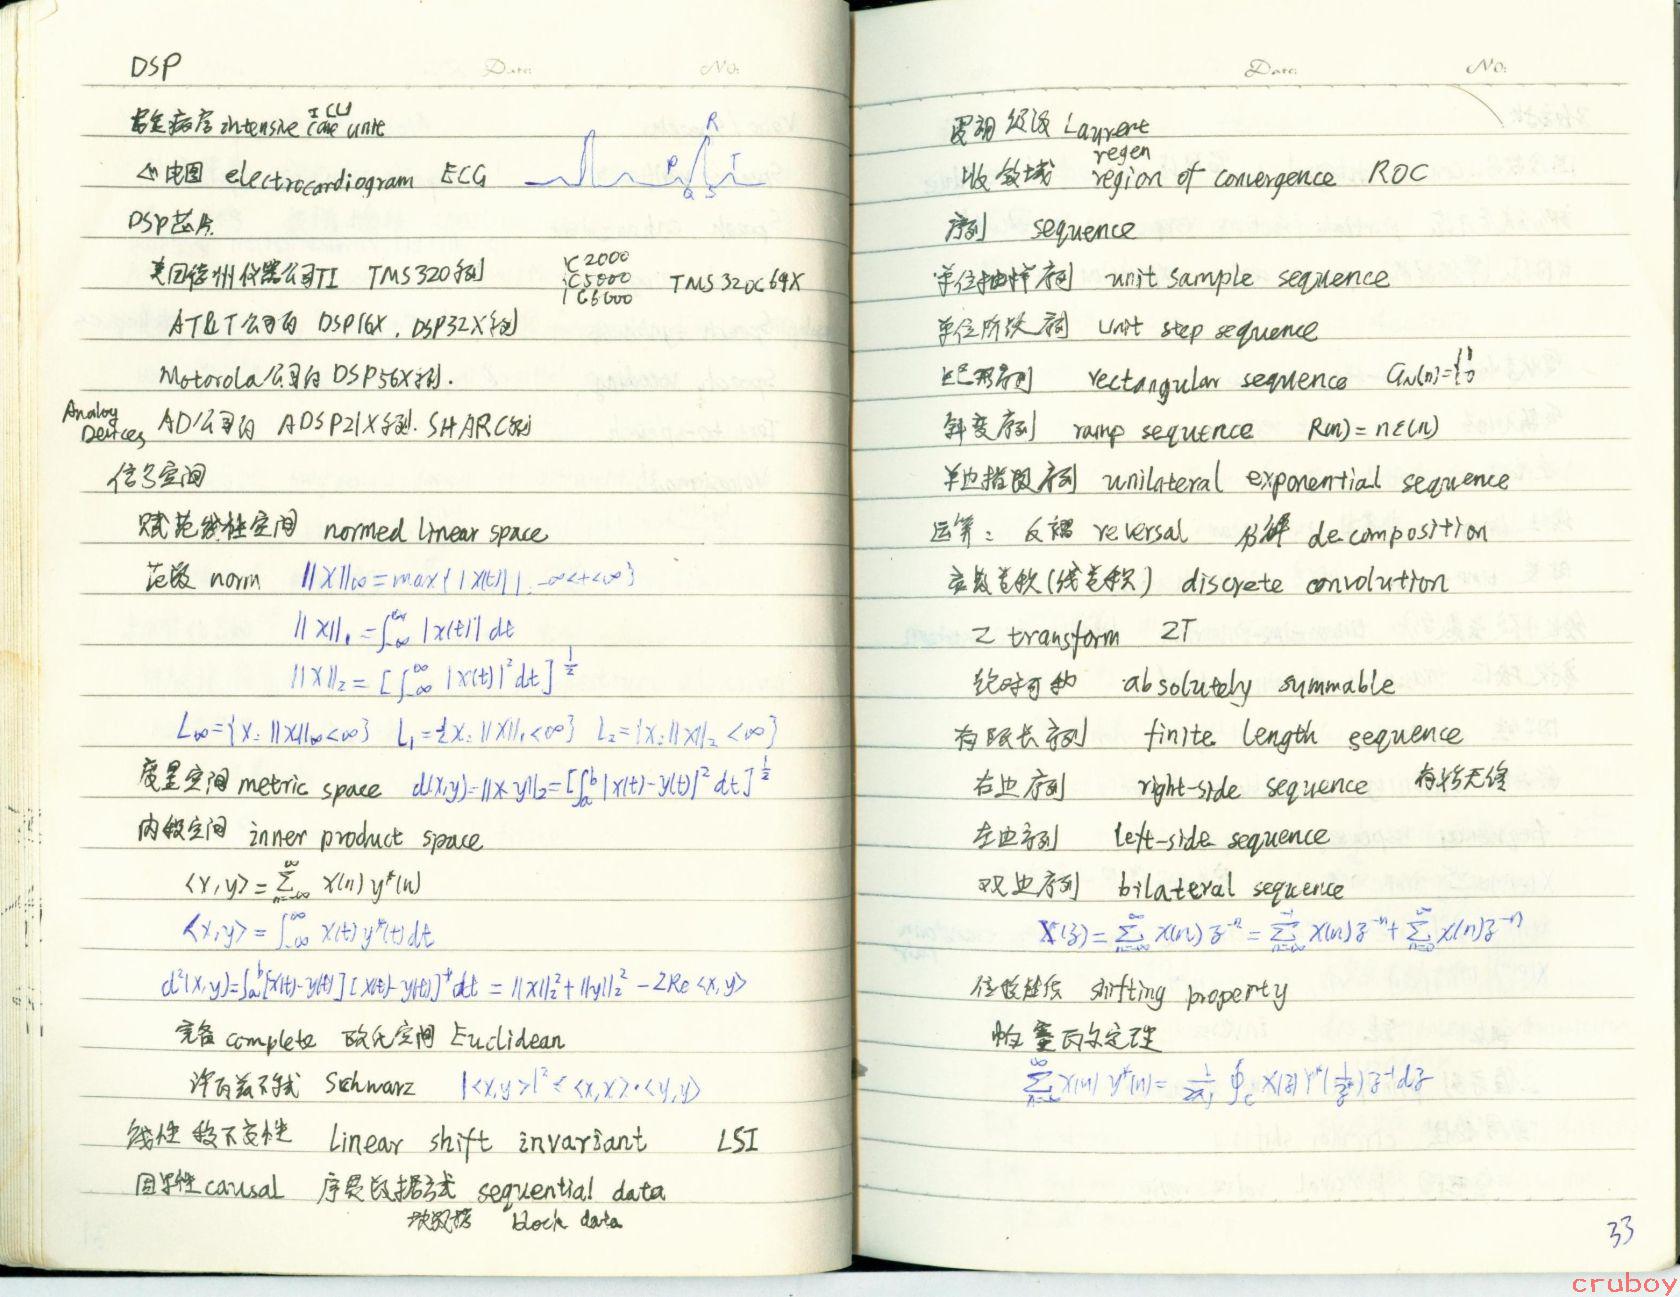 DSP
Date: No:
ICU
intensive care unit
心电图 electrocardiogram ECG
R
P T
Q S
DSP芯片
美国德州仪器公司TI TMS320系列 C2000 C5000 C6000 TMS320C64X
AT&T公司的 DSP16X, DSP32X系列
Motorola公司的 DSP56X系列.
Analog Devices AD公司的 ADSP21X系列. SHARC系列
信号空间
赋范线性空间 normed linear space
范数 norm ||X||∞ = max{|x(t)|, -∞<t<∞}
||X||₁ = ∫_{-∞}^{∞} |x(t)| dt
||X||₂ = [∫_{-∞}^{∞} |x(t)|² dt]^{1/2}
L∞={x: ||x||∞<∞} L₁={x: ||x||₁<∞} L₂={x: ||x||₂<∞}
度量空间 metric space d(x,y)=||x-y||₂=[∫_a^b |x(t)-y(t)|² dt]^{1/2}
内积空间 inner product space
<x,y> = Σ_{n=-∞}^{∞} x(n) y*(n)
<x,y> = ∫_{-∞}^{∞} x(t) y*(t) dt
d²(x,y)=∫_a^b [x(t)-y(t)][x(t)-y(t)]* dt = ||x||₂²+||y||₂² - 2Re<x,y>
完备 complete 欧氏空间 Euclidean
许瓦兹不等式 Schwarz |<x,y>|² ≤ <x,x>·<y,y>
线性移不变性 linear shift invariant LSI
因果性 causal 序贯数据方式 sequential data
块数据 block data
Date: No:
罗朗级数 Laurent
regen
收敛域 region of convergence ROC
序列 sequence
单位抽样序列 unit sample sequence
单位阶跃序列 unit step sequence
矩形序列 rectangular sequence G_N(n)={1 0
斜变序列 ramp sequence R(n)=nε(n)
单边指数序列 unilateral exponential sequence
运算: 反褶 reversal 分解 decomposition
离散卷积(线卷积) discrete convolution
Z transform ZT
绝对可和 absolutely summable
有限长序列 finite length sequence
右边序列 right-side sequence 有始无终
左边序列 left-side sequence
双边序列 bilateral sequence
X(z)=Σ_{n=-∞}^{∞} x(n) z^{-n} = Σ_{n=-∞}^{-1} x(n) z^{-n} + Σ_{n=0}^{∞} x(n) z^{-n}
位移性质 shifting property
帕塞瓦尔定理
Σ_{n=-∞}^{∞} x(n) y*(n) = 1/2πj ∮_c X(z) Y*(1/z*) z^{-1} dz
33
cruboy